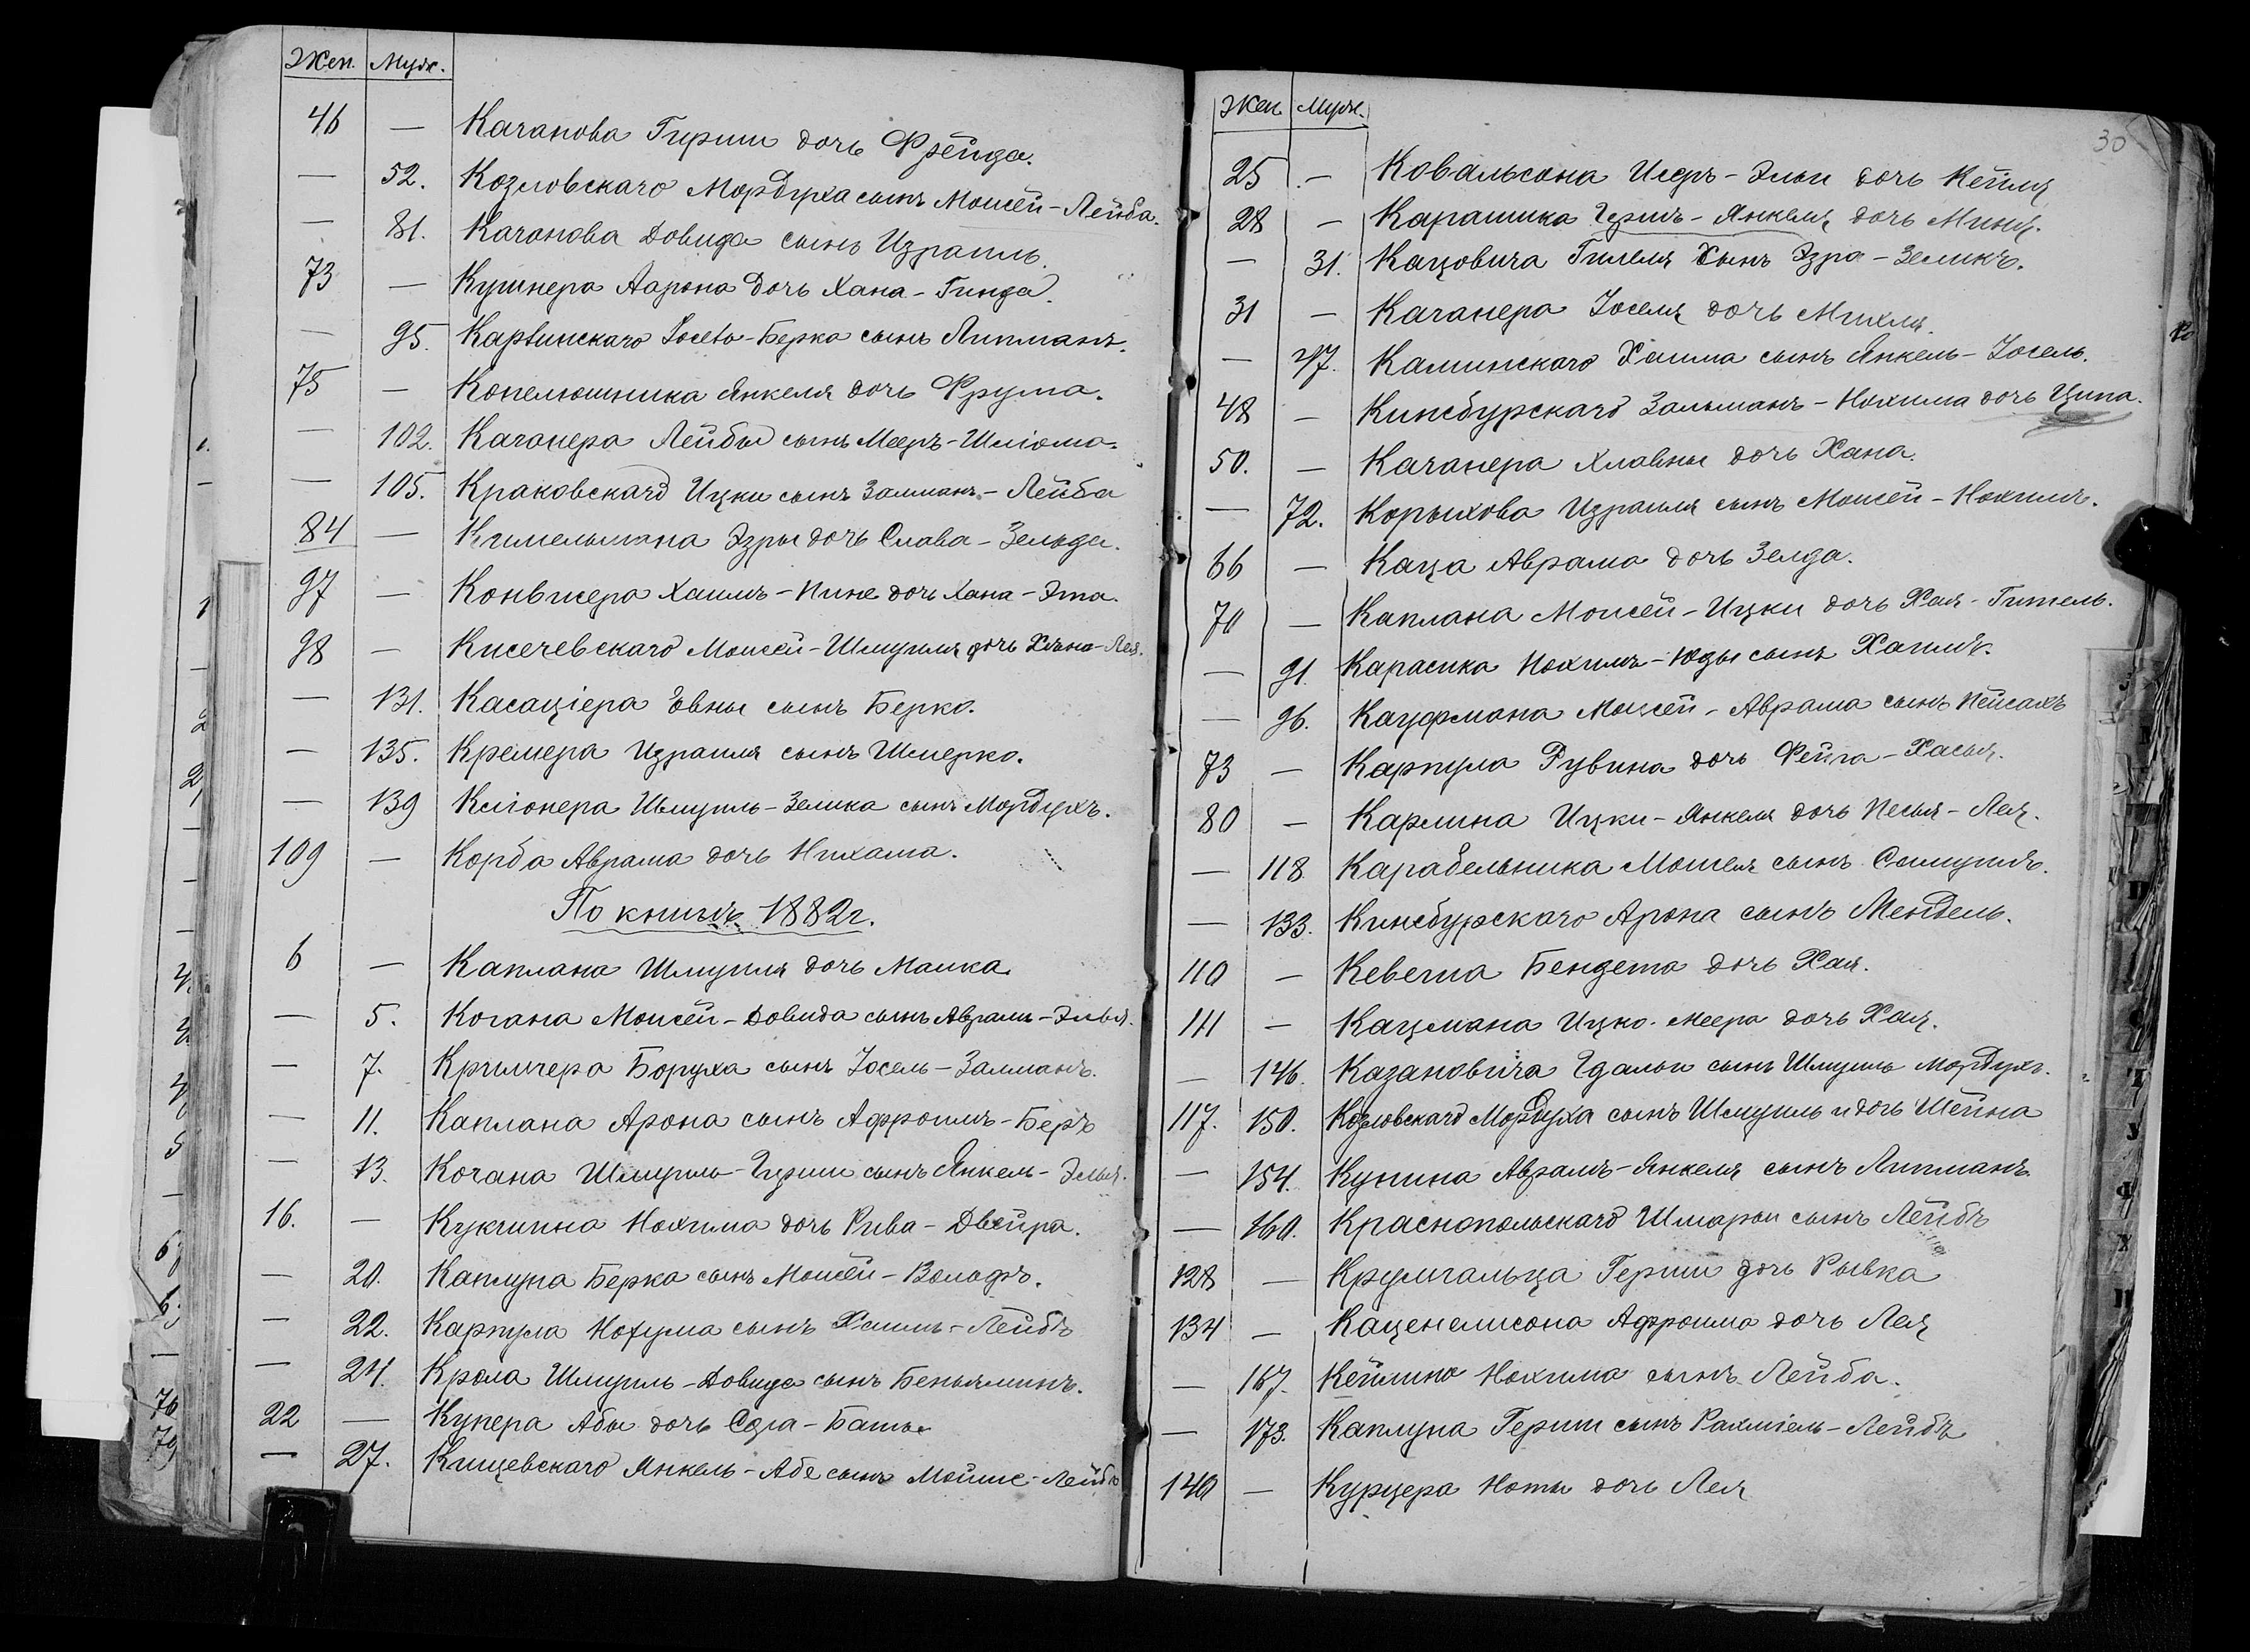 Жен. Муж.
46 — Качанова Гирши дочь Фрейда.
— 52. Козловскаго Мордуха сынъ Моисей-Лейба.
— 81. Качанова Довида сынъ Израиль.
73 — Кушнера Аарона дочь Хана-Гинда.
— 95. сынъ Липманъ.
75 — Копелюшника Янкеля дочь Фрума.
— 102. Качанера Лейбы сынъ Мееръ-Шліома.
— 105. Краковскаго Ицки сынъ Залманъ-Лейба
84 — Кимельмана Эзры дочь Слава-Зельда.
97 — Конвисера Хаимъ-Пине дочь Хана-Эта.
98 — Кисечевскаго Моисей-Шмуиля дочь Хьяна-Лея.
— 131. Касаціера Евны сынъ Берко.
— 135. Кремера Израиля сынъ Шмерко.
— 139 Кліонера Шмуиль-Зелика сынъ Мордухъ.
109 — Корба Аврама дочь Нихама.
По книгѣ 1882г.
6 — Каплана Шмуиля дочь Малка
— 5. Когана Моисей-Довида сынъ Аврамъ-Элья.
— 7. Кримчера Боруха сынъ Іосель-Залманъ.
— 11. Каплана Арона сынъ Афроимъ-Беръ
— 13. Кочана Шмуиль-Гирши сынъ Янкель-Элья.
16. — Нохима дочь Рива-Двейра.
— 20. Каплуна Берка сынъ Моисей-Вольфъ.
— 22. Карпула Нохума сынъ Хаимъ-Лейбъ
— 24. Крола Шмуиль-Довида сынъ Беньяминъ.
22 — Купера Абы дочь
— 27. Кицевскаго Янкель-Абе сынъ Моише-Лейба
30
Жен. Муж.
25 — Ковальсона Исеръ-Эльи дочь Кейля
28 — Карашика Гершъ-Янкеля дочь Миня.
— 31. Кацовича Гилеля сынъ Эзра-Зеликъ.
31 — Качанера Іоселя дочь Михля.
— 47. Каминскаго Хаима сынъ Янкель-Іосель.
48 — Кинсбурскаго Зальманъ-Нохима дочь Ципа.
50. — Качанера Хлавны дочь Хана.
— 72. Корыхова Израиля сынъ Моисей-Нохимъ.
66 — Каца Аврама дочь Зелда.
70 — Каплана Моисей-Ицки дочь Хая-Гитель.
— 91. Карасика Нохимъ-Юды сынъ Хаимъ.
— 96. Кауфмана Моисей-Аврама сынъ Пейсахъ
73 — Карпула Рувина дочь Фейга-Хасья.
80 — Карлина Ицки-Янкеля дочь Песья-Лея.
— 118. Карабельника Мошея сынъ Самуилъ.
— 133. Кинсбурскаго Арона сынъ Мендель.
110 — Бендета дочь Хая.
111 — Кацмана Ицко-Меера дочь Хая.
— 146. Казановича Гдальи сынъ Шмуиль Мордухъ.
117. 150. Козловскаго Мордуха сынъ Шмуиль и дочь Шейна
— 154. Кунина Аврамъ-Янкеля сынъ Липманъ.
— 160. Краснопольскаго Шмарьи сынъ Лейбъ
128 — Крумгальца Герши дочь Рывка
134 — Каценелисона Афроима дочь Лея
— 167. Кейлина Нохима сынъ Лейба.
— 173. Каплуна Герши сынъ Рахміель-Лейбъ
140 — Курцера Ноты дочь Лея